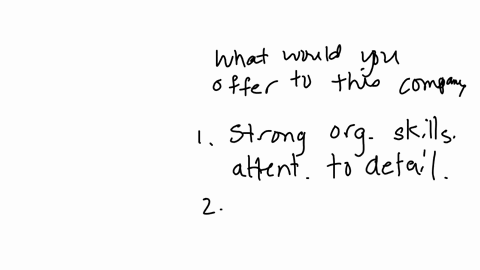 What would you
offer to this company
1. Strong org. skills.
attent. to detail.
2.